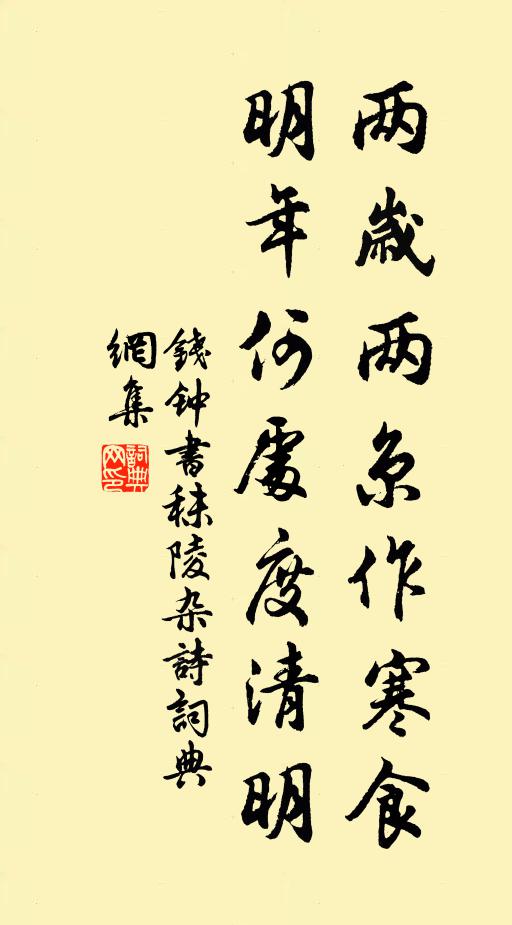 两歳两京作寒食
明年何處度清明
錢钟書秣陵杂詩詞典
網集
詞典网印